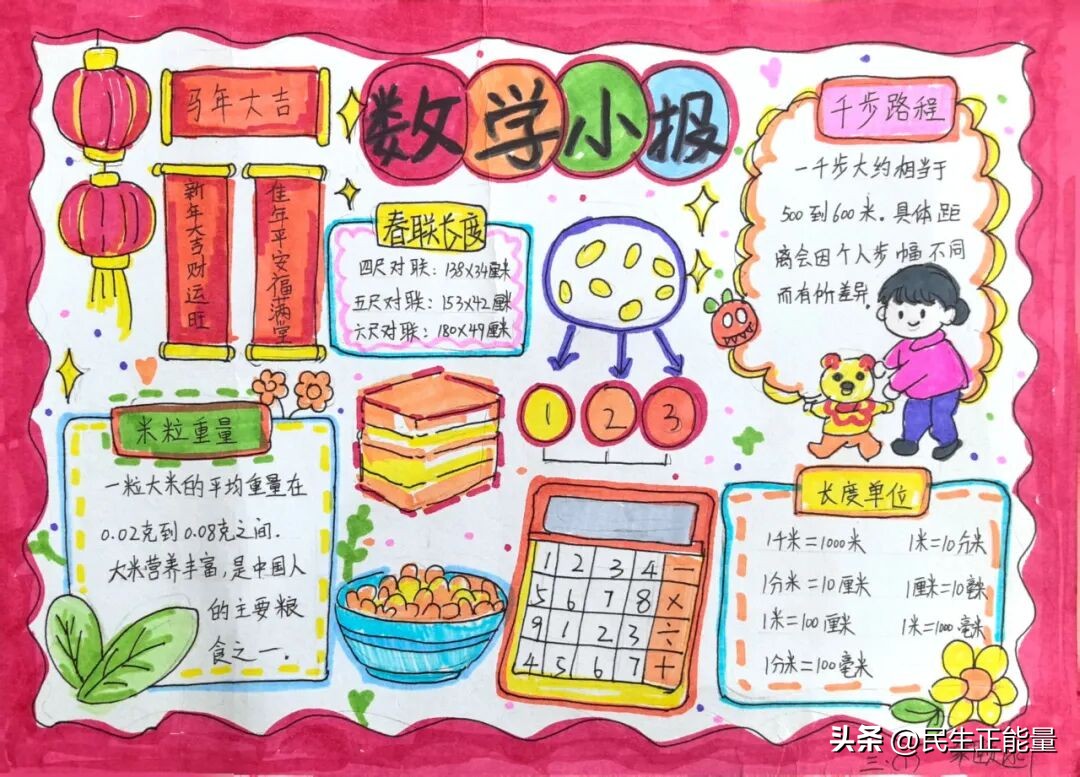 数学小报
马年大吉
新年大吉财运旺
佳年平安福满堂
春联长度
四尺对联：138X34厘米
五尺对联：153X42厘米
六尺对联：180X49厘米
千步路程
一千步大约相当于
500到600米。具体距
离会因个人步幅不同
而有所差异
米粒重量
一粒大米的平均重量在
0.02克到0.08克之间.
大米营养丰富,是中国人
的主要粮
食之一.
1 2 3
1 2 3 4 －
5 6 7 8 ×
9 1 2 3 ÷
4 5 6 7 +
长度单位
1千米=1000米 1米=10分米
1分米=10厘米 1厘米=10毫米
1米=100厘米 1米=1000毫米
1分米=100毫米
三.(1)
头条 @民生正能量